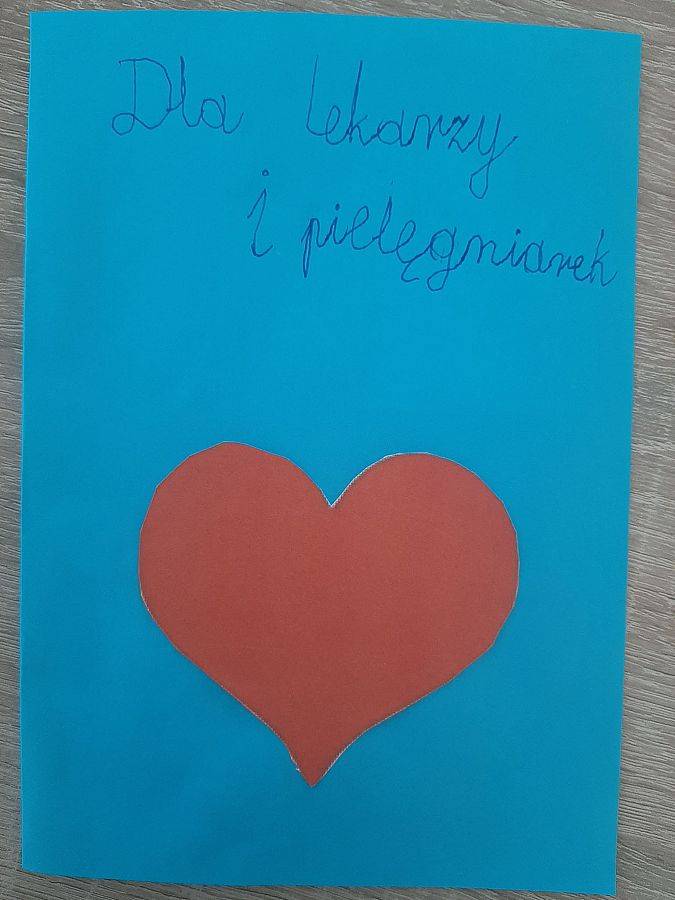 Dla lekarzy
i pielęgniarek